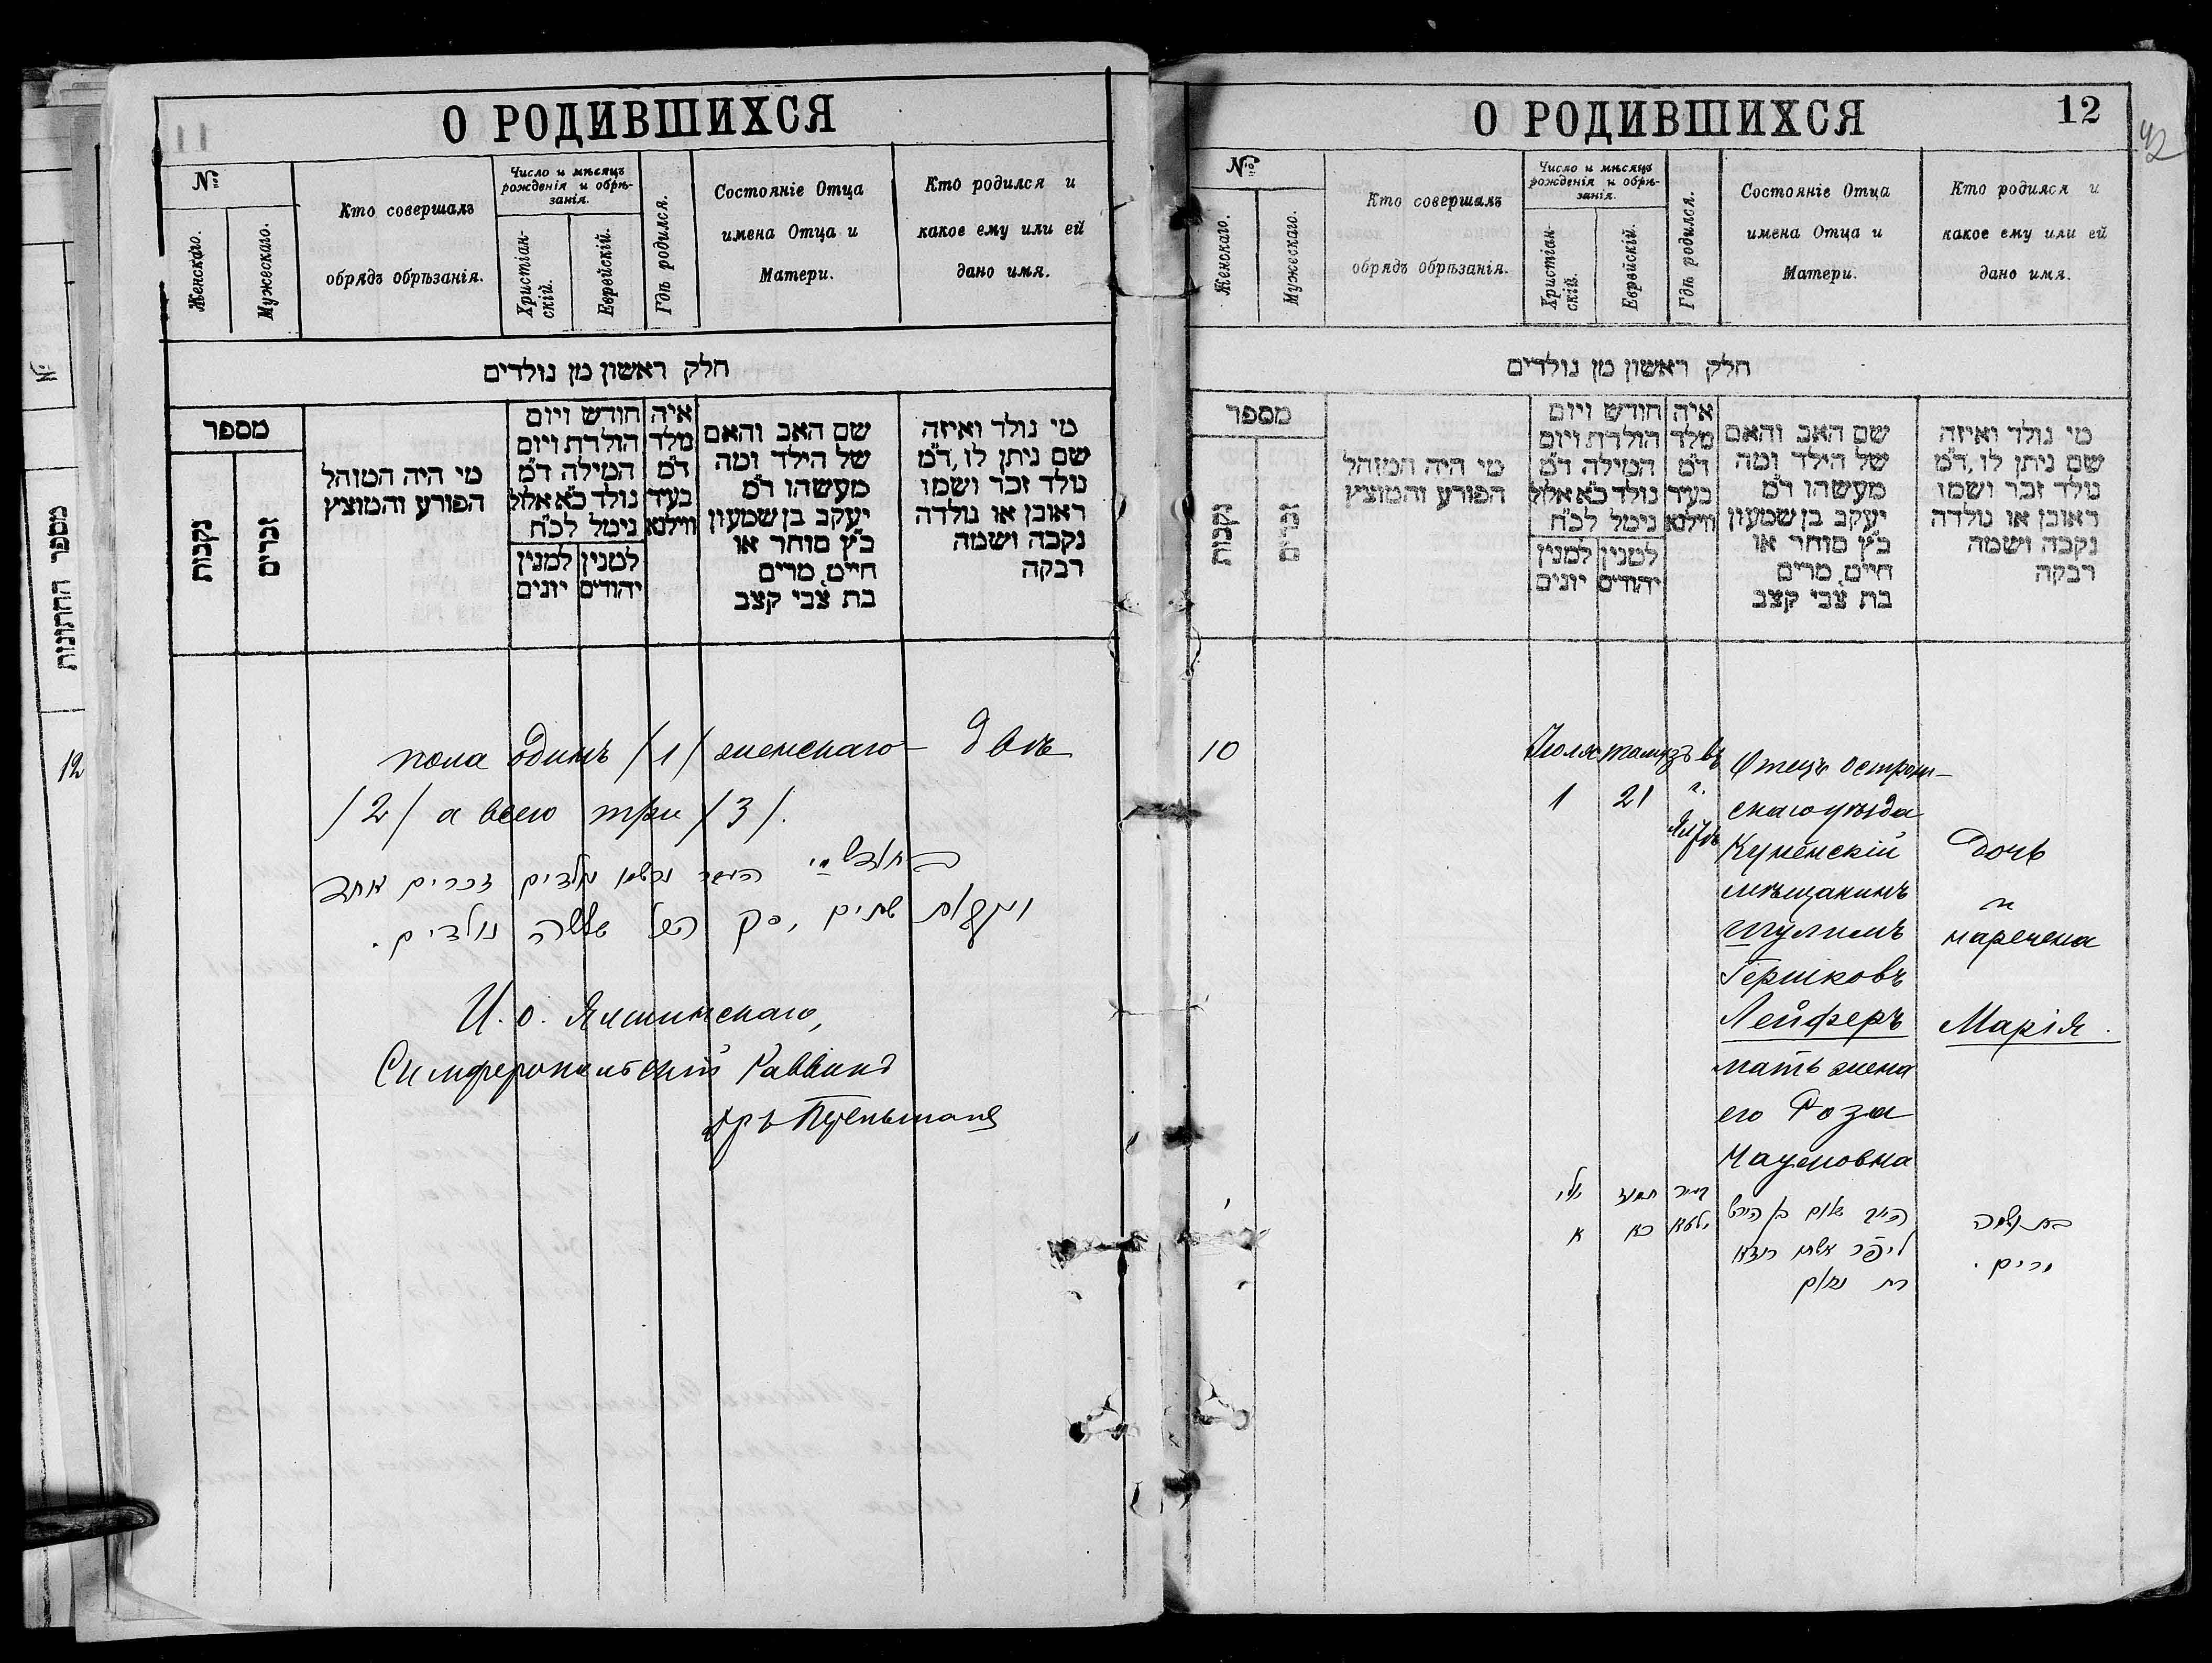 О РОДИВШИХСЯ
11
№
Женскаго.
Мужескаго.
Кто совершалъ
обрядъ обрѣзанія.
Число и мѣсяцъ
рожденія и обрѣ-
занія.
Христіан-
скій.
Еврейскій.
Гдѣ родился.
Состояніе Отца
имена Отца и
Матери.
Кто родился и
какое ему или ей
дано имя.
חלק ראשון מן נולדים
מספר
נקבות
זכרים
מי היה המוהל
הפורע והמוציץ
חודש ויום
הולדת ויום
המילה ד״מ
נולד כ״א אלול
נימל לכ״ח
למנין יהודים
למנין יונים
איה
מלד
ד״מ
בעיר
ווילנא
שם האב והאם
של הילד ומה
מעשהו ד״מ
יעקב בן שמעון
כ״ץ סוחר או
חייט מרים
בת צבי קצב
מי נולד ואיזה
שם ניתן לו ד״מ
נולד זכר ושמו
ראובן או נולדה
נקבה ושמה
רבקה
пола одинъ /1/ женскаго двѣ
/2/ а всего три /3/.
נולדים זכרים אחד
שתים, סך הכל שלשה נולדים.
И. о. Ялтинскаго,
Симферопольскій Раввинъ
מספר החתונות
№
12
О РОДИВШИХСЯ
12
№
Женскаго.
Мужескаго.
Кто совершалъ
обрядъ обрѣзанія.
Число и мѣсяцъ
рожденія и обрѣ-
занія.
Христіан-
скій.
Еврейскій.
Гдѣ родился.
Состояніе Отца
имена Отца и
Матери.
Кто родился и
какое ему или ей
дано имя.
חלק ראשון מן נולדים
מספר
נקבות
זכרים
מי היה המוהל
הפורע והמוציץ
חודש ויום
הולדת ויום
המילה ד״מ
נולד כ״א אלול
נימל לכ״ח
למנין יהודים
למנין יונים
איה
מלד
ד״מ
בעיר
ווילנא
שם האב והאם
של הילד ומה
מעשהו ד״מ
יעקב בן שמעון
כ״ץ סוחר או
חייט מרים
בת צבי קצב
מי נולד ואיזה
שם ניתן לו ד״מ
נולד זכר ושמו
ראובן או נולדה
נקבה ושמה
רבקה
10
Іюля
1
тамузъ
21
въ
г.
Ялтѣ
Отецъ острож-
скаго уѣзда
Куненскій
мѣщанинъ
Шулимъ
Гершковъ
Лейферъ
мать жена
его Роза
Наумовна
Дочь
и
наречена
Марія.
יולי
א
תמוז
כא
בעיר
ילטא
שלום בן הירש
ליפֿר אשתו רוזא
בת נחום